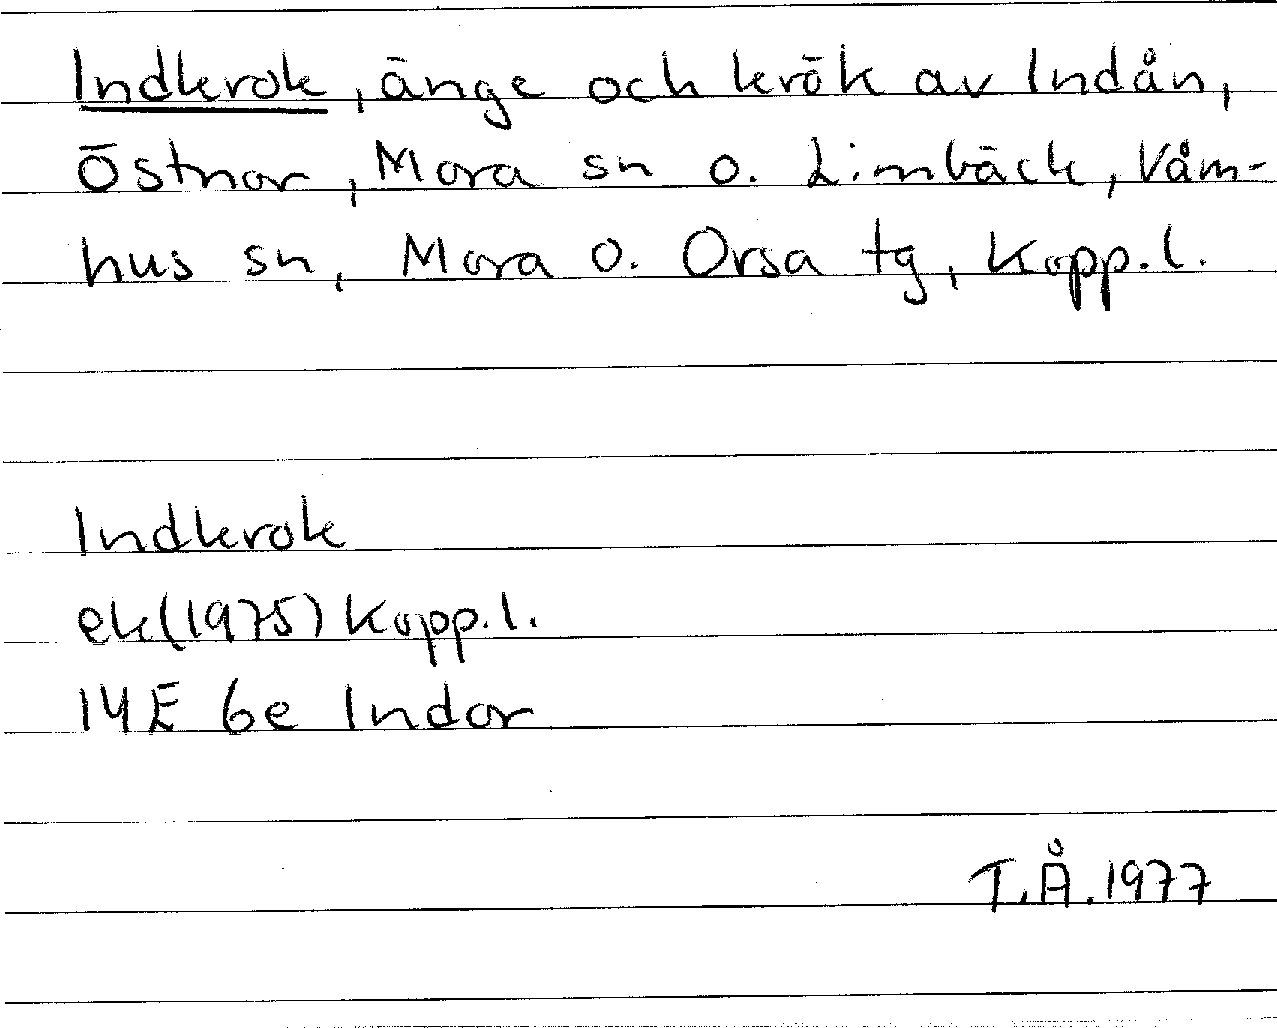 Indkrok, änge och krök av Indån,
Östnor, Mora sn o. Limbäck, Våm-
hus sn, Mora o. Orsa tg, Kopp.l.
Indkrok
ek(1975) Kopp.l.
14E 6e Indor
T.Å.1977